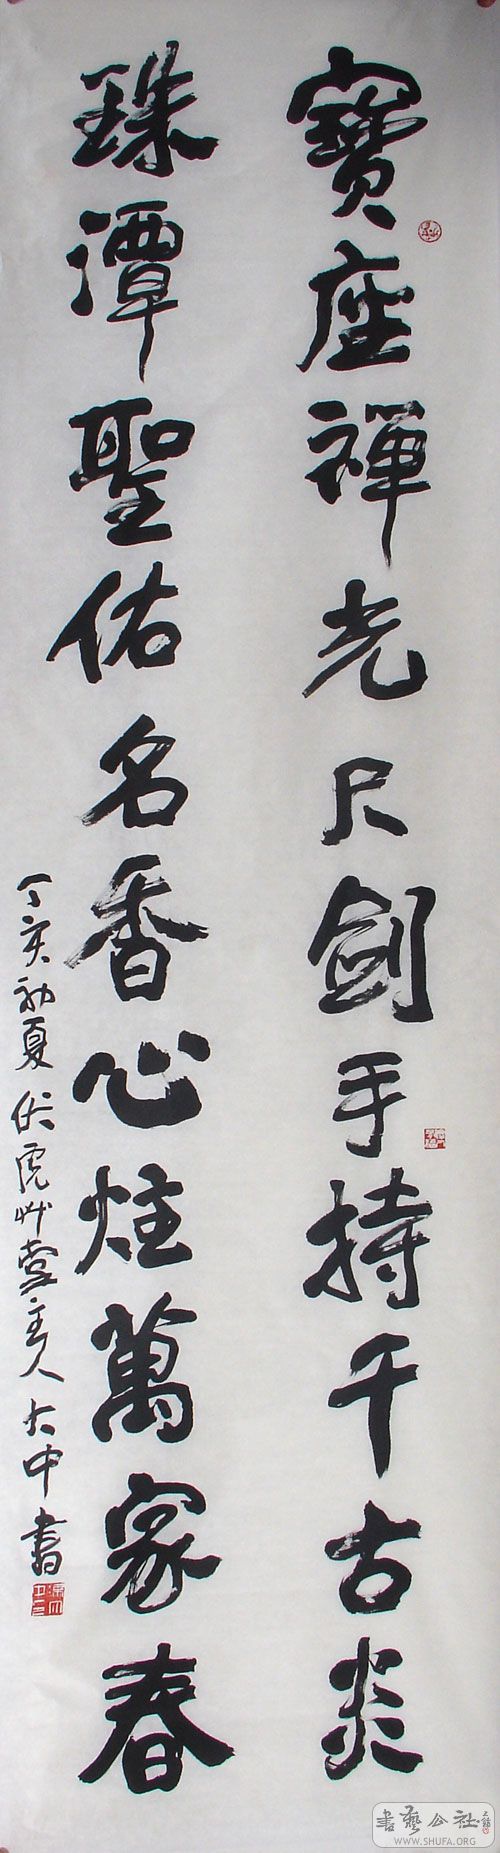 寶座禪光尺劍手持千古炎
珠潭聖佑名香心炷萬家春
丁亥初夏伏虎艸堂主人大中書
書藝公社
WWW.SHUFA.ORG